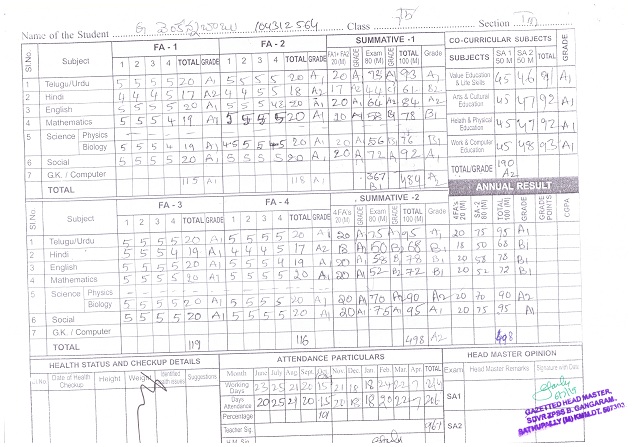 Name of the Student 104312564 Class Section
Sl.No. Subject FA - 1 FA - 2 SUMMATIVE -1 CO-CURRICULAR SUBJECTS
1 2 3 4 TOTAL GRADE 1 2 3 4 TOTAL GRADE FA1+ FA2 20 (M) Exam 80 (M) TOTAL 100 (M) Grade SUBJECTS SA 1 50 M SA 2 50 M TOTAL GRADE
1 Telugu/Urdu 5 5 5 5 20 A1 5 5 5 5 20 A1 20 A 73 A 93 A1 Value Education & Life Skills 45 46 91 A1
2 Hindi 4 4 4 5 17 A2 4 5 4 5 18 A2 17 B2
3 English 5 5 5 5 20 A1 5 5 5 20 A1 20 A 64 A2 84 A2 Arts & Cultural Education 45 47 92 A1
4 Mathematics 5 5 5 4 19 A1 5 5 5 5 20 A1 20 A 58 B 78 B1 Health & Physical Education 45 47 92 A1
5 Science Physics
Biology 5 5 5 4 19 A1 5 5 20 A1 20 A 56 B 76 B1 Work & Computer Education 45 48 93 A1
6 Social 5 5 5 5 20 A1 5 5 5 5 20 A1 20 A 72 A 92 A1
7 G.K. / Computer TOTAL/GRADE 190 A2
TOTAL 115 A1 118 A1 367 B1 484 A2
ANNUAL RESULT
Sl.No. Subject FA - 3 FA - 4 SUMMATIVE -2
1 2 3 4 TOTAL GRADE 1 2 3 4 TOTAL GRADE 4FA's 20 (M) Exam 80 (M) TOTAL 100 (M) Grade 4FA's 20 (M) SA-2 80 (M) TOTAL 100 (M) GRADE GRADE POINTS CGPA
1 Telugu/Urdu 5 5 5 5 20 A1 5 5 5 5 20 A1 20 A 75 A 95 A1 20 75 95 A1
2 Hindi 5 5 5 4 19 A1 4 4 4 5 17 A2 18 A 50 B 68 B1 18 50 68 B1
3 English 5 5 5 5 20 A1 5 5 5 4 19 A1 20 A 58 B 78 B1 20 58 78 B1
4 Mathematics 5 5 5 5 20 A1 5 5 5 5 20 A1 20 A 52 B 72 B1 20 52 72 B1
5 Science Physics
Biology 5 5 5 5 20 A1 5 5 5 5 20 A1 20 A 70 A 90 A2 20 70 90 A2
6 Social 5 5 5 5 20 A1 5 5 5 5 20 A1 20 A 75 A 95 A1 20 75 95 A1
7 G.K. / Computer
TOTAL 119 116 498 A2 498
HEALTH STATUS AND CHECKUP DETAILS ATTENDANCE PARTICULARS HEAD MASTER OPINION
Sl.No. Date of Health Checkup Height Weight Identified Health issues Suggestions Month June July Aug. Sep. Oct. Nov. Dec. Jan. Feb. Mar. Apr. TOTAL Exam Head Master Remarks Signature with Date
Working Days 23 25 21 20 15 21 18 18 24 22 7 214
Days Attendance 20 25 21 20 15 20 18 18 20 22 7 206 SA1
Percentage
Teacher Sig. 96.7 SA2
H.M. Sig.
GAZETTED HEAD MASTER,
SDVR ZPSS B. GANGARAM,
SATHUPALLY (M) KMM.DT. 507303